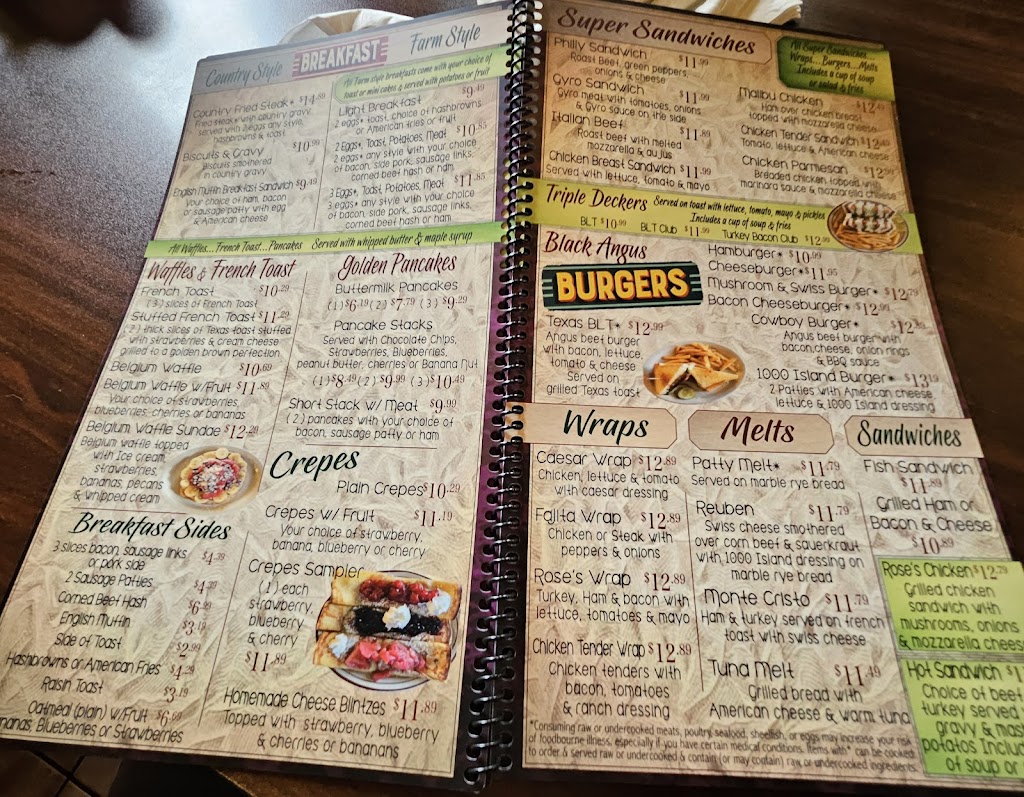 Country Style
BREAKFAST
Farm Style
All Farm style breakfasts come with your choice of
toast or mini cakes & served with potatoes or fruit
Country Fried Steak* $14.89
Fried steak with country gravy
served with 2 eggs any style,
hashbrowns & toast
Biscuits & Gravy $10.99
Biscuits smothered
in country gravy
English Muffin Breakfast Sandwich $9.49
Your choice of ham, bacon
or sausage patty with egg
& American cheese
Light Breakfast $9.49
2 eggs* toast, choice of hashbrowns
or American fries or fruit
2 Eggs*, Toast, Potatoes, Meat $10.85
2 eggs* any style with your choice
of bacon, side pork, sausage links,
corned beef hash or ham
3 Eggs*, Toast, Potatoes, Meat $11.85
3 eggs* any style with your choice
of bacon, side pork, sausage links,
corned beef hash or ham
All Waffles...French Toast...Pancakes Served with whipped butter & maple syrup
Waffles & French Toast
French Toast $10.29
(3) slices of French Toast
Stuffed French Toast $11.29
(2) thick slices of Texas toast stuffed
with strawberries & cream cheese
grilled to a golden brown perfection
Belgium Waffle $10.69
Belgium Waffle w/Fruit $11.89
Your choice of strawberries,
blueberries, cherries or bananas
Belgium Waffle Sundae $12.29
Belgium waffle topped
with ice cream,
strawberries,
bananas, pecans
& whipped cream
Golden Pancakes
Buttermilk Pancakes
(1) $6.19 (2) $7.79 (3) $9.29
Pancake Stacks
Served with Chocolate Chips,
Strawberries, Blueberries,
peanut butter, cherries or Banana Nut
(1) $8.49 (2) $9.99 (3) $10.49
Short Stack w/ Meat $9.99
(2) pancakes with your choice of
bacon, sausage patty or ham
Crepes
Plain Crepes $10.29
Crepes w/ Fruit $11.19
Your choice of strawberry,
banana, blueberry or cherry
Crepes Sampler
(1) each
strawberry,
blueberry
& cherry
$11.89
Homemade Cheese Blintzes $11.89
Topped with strawberry, blueberry
& cherries or bananans
Breakfast Sides
3 slices bacon, sausage links
or pork side $4.39
2 Sausage Patties $4.39
Corned Beef Hash $6.99
English Muffin $3.19
Side of Toast $2.99
Hashbrowns or American Fries $4.29
Raisin Toast $3.19
Oatmeal (plain) w/Fruit $6.69
Blueberries or Strawberries
Super Sandwiches
All Super Sandwiches...
Wraps...Burgers...Melts
Includes a cup of soup
or salad & fries
Philly Sandwich $11.99
Roast Beef, green peppers,
onions & cheese
Gyro Sandwich $11.99
Gyro meat with tomatoes, onions,
& Gyro sauce on the side
Italian Beef $11.89
Roast beef with melted
mozzarella & au jus
Chicken Breast Sandwich $11.99
Served with lettuce, tomato & mayo
Malibu Chicken
Ham over chicken breast
topped with mozzarella cheese
Chicken Tender Sandwich
Tomato, lettuce & American cheese
Chicken Parmesan
Breaded chicken topped with
marinara sauce & mozzarella cheese
Triple Deckers Served on toast with lettuce, tomato, mayo & pickles
Includes a cup of soup & fries
BLT $10.99 BLT Club $11.99 Turkey Bacon Club $12.99
Black Angus
BURGERS
Texas BLT* $12.99
Angus beef burger
with bacon, lettuce,
tomato & cheese
Served on
grilled Texas toast
Hamburger* $10.99
Cheeseburger* $11.95
Mushroom & Swiss Burger* $12.79
Bacon Cheeseburger* $12.99
Cowboy Burger*
Angus beef burger with
bacon, cheese, onion rings
& BBQ sauce
1000 Island Burger* $13.19
2 Patties with American cheese
lettuce & 1000 Island dressing
Wraps
Caesar Wrap $12.89
Chicken, lettuce & tomato
with caesar dressing
Fajita Wrap $12.89
Chicken or Steak with
peppers & onions
Rose's Wrap $12.89
Turkey, Ham & bacon with
lettuce, tomatoes & mayo
Chicken Tender Wrap $12.89
Chicken tenders with
bacon, tomatoes
& ranch dressing
Melts
Patty Melt* $11.79
Served on marble rye bread
Reuben $11.79
Swiss cheese smothered
over corn beef & sauerkraut
with 1000 Island dressing on
marble rye bread
Monte Cristo $11.79
Ham & turkey served on french
toast with swiss cheese
Tuna Melt $11.49
Grilled bread with
American cheese & warm tuna
Sandwiches
Fish Sandwich
$11.89
Grilled Ham or
Bacon & Cheese
$10.89
Rose's Chicken $12.79
Grilled chicken
sandwich with
mushrooms, onions
& mozzarella cheese
Hot Sandwich
Choice of beef
turkey served
gravy &
potatoes
of soup or
*Consuming raw or undercooked meats, poultry, seafood, shellfish, or eggs may increase your risk
of foodbourne illness, especially if you have certain medical conditions. Items with* can be cooked
to order & served raw or undercooked & contain (or may contain) raw or undercooked ingredients.